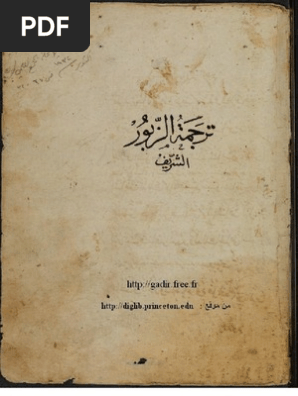 PDF
ترجمة الزبور
الشريف
http://gadir.free.fr
من موقع : http://diglib.princeton.edu